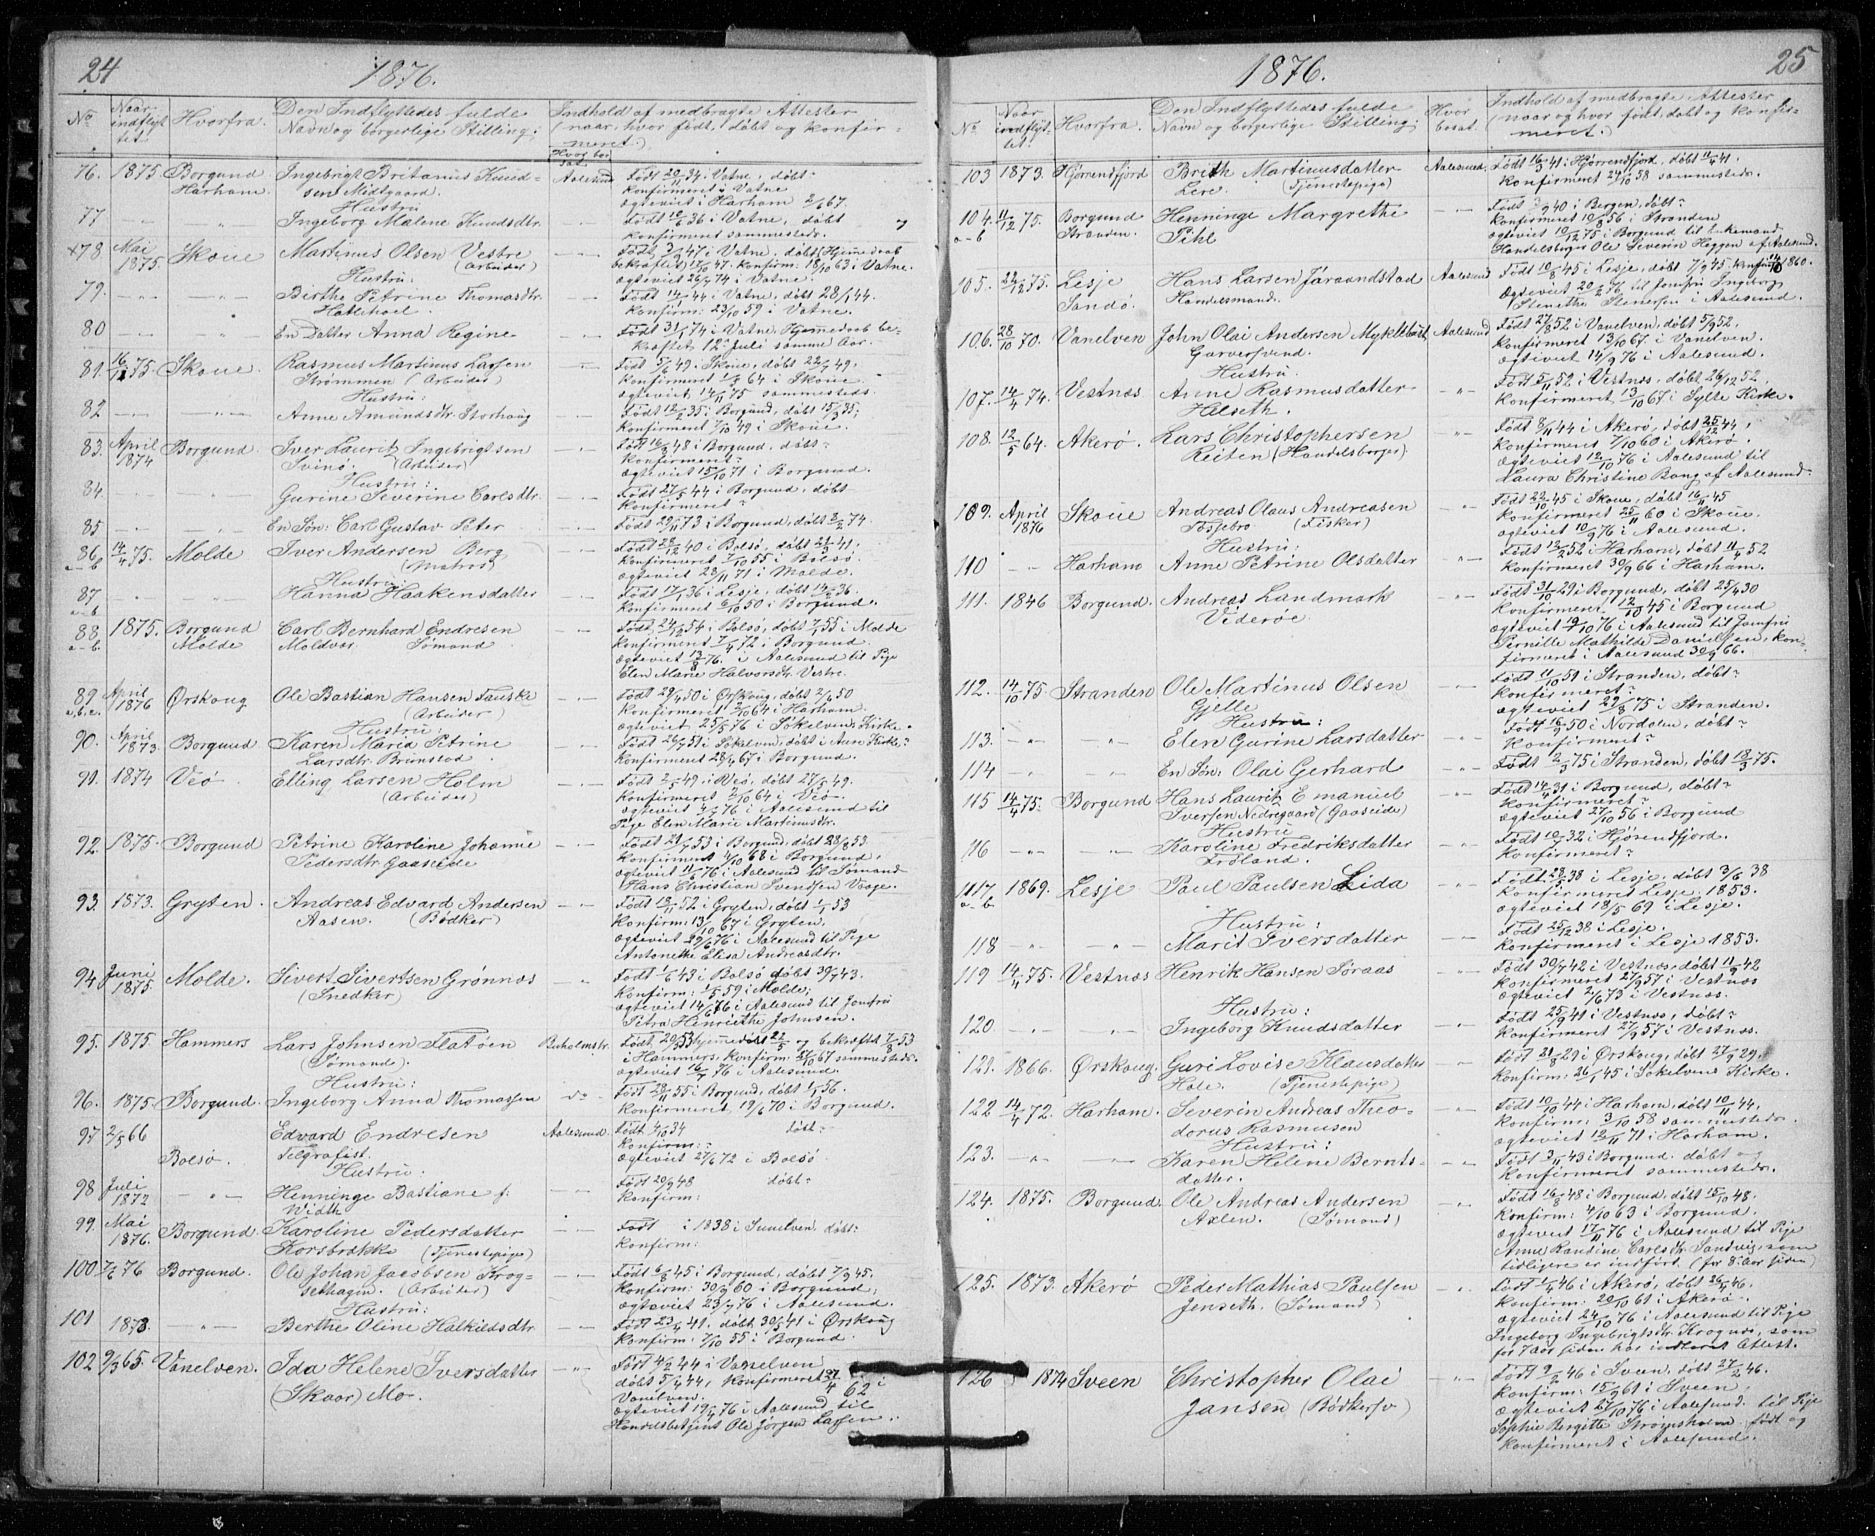 24
1876.
No
Naar indflyttet
Hvorfra.
Den Indflyttedes fulde Navn og borgerlige Stilling.
Hvor bosat.
Indhold af medbragte Attester (naar, hvor født, døbt og konfirmeret.)
76. 1875 Borgund Ingebrigt Britanus Knud- Aalesund Født 20/11 34 i Vatne, døbt-
Harham. sen Midtgaard. konfirmeret i Vatne
Hustru ægteviet i Harham 2/6 67.
77 Ingeborg Malene Knudsdtr. Født 10/6 36 i Vatne, døbt
konfirmeret sammesteds.
78 Mai 1875 Skoue Martinus Olsen Vestre Født 3/9 47 i Vatne, døbt (Hjemmedaab
(Arbeider) bekræftet 17/10 47. konfirm: 18/10 63 i Vatne.
Hustru: ægteviet 26/7 74 i Vatne.
79. Birthe Petrine Thomasdtr. Født 14/1 44 i Vatne, døbt 28/1 44.
Hatlehoel. konfirm: 23/10 59 i Vatne.
80 En Datter Anna Regine Født 31/1 74 i Vatne, Hjemmedaab be-
kræftet 12. Juli samme Aar.
81. 16/12 75 Skoue. Rasmus Martinus Larsen Født 5/6 49. Skoue, døbt 22/7 49.
Strømmen (Arbeider) konfirmeret 64 i Skoue.
Hustru: ægteviet 14/11 75 sammesteds.
82 Anne Amundsdtr. Storhaug Født 12/2 35 i Borgund, døbt 15/3 35,
konfirmeret 7/10 49 i Skoue.
83. April 1874 Borgund. Iver Laurits Ingebrigtsen Født 16/3 48 i Borgund, døbt-
Svinø. (Arbeider) konfirmeret-
Hustru: ægteviet 15/10 71 i Borgund.
84. Gurine Severine Carlsdtr. Født 27/5 44 i Borgund, døbt-
konfirmeret-
85 En Søn: Carl Gustav Peter Født 29/11 73 i Borgund, døbt 2/2 74.
86 a-b 14/4 75. Molde Iver Andersen Berg Født 28/12 40 i Bolsø, døbt 41.
(Matros) konfirmeret 7/10 55 i Bolsø.
Hustru: ægteviet 23/11 71 i Molde.
87 a-b Hanna Haakensdatter Født 17/1 36 i Lesje, døbt 14/2 36.
konfirmeret 6/10 50 i Borgund.
88 a-b. 1875. Borgund Carl Bernhard Endresen Født 24/12 54 i Bolsø, døbt 7/1 55 i Molde
Molde Moldvar Sømand konfirmeret 7/4 72 i Borgund
ægteviet 13/8 76. i Aalesund til Pige
Elen Marie Halvorsdtr. Vestre.
89 a,b,c. April 1876 Ørskoug Ole Bastian Hansen Fauske Født 29/1 50 i Ørskoug, døbt 2/2 50
(Arbeider) konfirmeret 2/10 64 i Harham.
Hustru: ægteviet 25/5 76 i Søkelvens Kirke.
90. April 1873. Borgund Karen Maria Petrine Født 26/7 51 i Søkelven, døbt i Aure Kirke-
Larsdtr. Brunstad konfirmeret 28/4 67 i Borgund.
91. 1874 Veø. Elling Larsen Holm Født 2/5 49. i Veø, døbt 27/5 49.
(Arbeider) konfirmeret 2/10 64 i Veø.
ægteviet 4/6 76 i Aalesund til
Pige Elen Marie Martinusdtr.
92. 1875. Borgund Petrine Karoline Johanne Født 21/7 53 i Borgund, døbt 28/8 53.
Pedersdtr. Gaaseide konfirmeret 4/10 68 i Borgund,
ægteviet 11/6 76 i Aalesund til Sømand
Hans Christian Svendsen Vaage.
93. 1873. Gryten. Andreas Edvard Andersen Født 13/11 52 i Gryten, døbt 1/1 53
Aasen. (Bødker) konfirm: 13/10 67 i Gryten.
ægteviet 29/6 76 i Aalesund til Pige
Antonette Elisa Andreasdtr.
94. Juni 1875. Molde. Sivert Sivertsen Grønnæs Født 1/6 43 i Bolsø døbt 30/7 43.
(Snedker) konfirm: 1/5 59 i Molde;
ægteviet 14/6 76 i Aalesund til Jomfru
Petra Henriette Johnsen.
95. 1875 Hammers Lars Johnsen Flatøen Buholmstr. Født 20/3 53 hjemmedøbt 22/5 og bekræftet 7/8 53
(Sømand). i Hammers, konfirm: 27/10 67 sammesteds.
Hustru: ægteviet 16/7 76 i Aalesund.
96. 1875. Borgund. Ingeborg Anna Thomassen do Født 28/11 55 i Borgund, døbt 1/1 56.
konfirmeret 19/6 70 i Borgund.
97 2/5 66 Edvard Endresen Aalesund. Født 4/10 34 døbt-
Bolsø. Telgrafist. konfirm:-
Hustru: ægteviet 27/6 72 i Bolsø
98 Juli 1872 Henninge Bastiane f: Født 20/9 48 døbt-
Width konfirm:
99. Mai 1876. Borgund. Karoline Pedersdatter Født i 1838 i Sunelven, døbt:
Korsbrække (Tjenestepige) konfirm:
100 7/6 76 Borgund. Ole Johan Jacobsen Krog- Født 6/8 45 i Borgund, døbt 7/9 45.
sethagen. (Arbeider) konfirm: 30/9 60 i Borgund,
Hustru: ægteviet 23/7 76 i Aalesund.
101 1873. Berthe Oline Halkildsdtr Født 23/4 41. døbt 30/5 41 i Ørskoug
konfirm: 7/10 55 i Borgund.
102 9/3 65. Vanelven. Ida Helene Iversdatter Født 4/2 44 i Vanelven
(Skaar) Mo. døbt 5/4 44, konfirmeret 27/4 62 i
Vanelven.
ægteviet 19/4 76 i Aalesund til
Handelsbetjent Ole Jørgen Larsen.
25
1876.
No
Naar indflyttet.
Hvorfra.
Den Indflyttedes fulde Navn og borgerlige Stilling.
Hvor bosat.
Indhold af medbragte Attester (naar og hvor født, døbt og konfirmeret.)
103 1873. Hjørrendfjord Brith Martinusdatter Aalesund. Født 16/3 41 i Hjørrendfjord, døbt 11/4 41.
Lere. (Tjenestepige) konfirmeret 24/10 58 sammesteds.
104. a-b 11/12 75. Borgund Henninge Margrethe Født 3/9 40 i Bergen, døbt-
Stranden. Pihl konfirmeret 19/10 56 i Stranden
ægteviet 10/12 75 i Borgund til Enkemand
Handelsborger Ole Severin Heggen af Aalesund.
105. 22/12 75. Lesje Hans Larsen Jøraandstad Aalesund Født 10/8 45 i Lesje, døbt 7/9 45 konfirm. 1860.
Sandø. Handelsmand. ægteviet 20/2 76 til Jomfru Ingeborg
Stenethe Stenersen i Aalesund.
106. 28/10 70. Vanelven John Olai Andersen Myklebust Aalesund Født 27/8 52 i Vanelven, døbt 5/9 52.
Garversvend. konfirmeret 13/10 67 i Vanelven.
Hustru. ægteviet 14/9 76 i Aalesund.
107. 14/4 74. Vestnæs Anne Rasmusdatter Født 5/11 52 i Vestnæs, døbt 26/12 52,
Helseth. konfirmeret 13/10 67 i Sylte Kirke.
108. 12/5 64. Akerø. Lars Christophersen Født 8/11 44 i Akerø, døbt 25/12 44,
Reiten (Handelsborger) konfirmeret 7/10 60 i Akerø.
ægteviet 12/10 76 i Aalesund til
Laura Christine Bang af Aalesund.
109. April 1876 Skoue Andreas Olaus Andreasen Født 22/10 45 i Skoue, døbt 16/11 45
Tossebro (Fisker) konfirmeret 25/11 60 i Skoue.
Hustru: ægteviet 10/9 76 i Aalesund.
110 Harham Anne Petrine Olsdatter Født 12/2 52 i Harham, døbt 11/4 52
konfirmeret 30/9 66 i Harham.
111. 1846 Borgund. Andreas Landmark Født 31/10 29 i Borgund, døbt 25/4 30
Viderøe. konfirmeret 12/10 45 i Borgund
ægteviet 19/10 76 i Aalesund til Jomfru
Pernille Mathilde Danielsen, kon-
firmeret i Aalesund 30/9 66.
112. 14/10 75. Stranden Ole Martinus Olsen Født 11/10 51 i Stranden, døbt-
Gjelle konfirmeret-
Hustru: ægteviet 29/8 75 i Stranden.
113. Elen Gurine Larsdatter Født 16/9 50 i Nordalen, døbt-
konfirmeret-
114 En Søn: Olai Gerhard Født 2/3 75 i Stranden, døbt 12/3 75.
115 14/4 75. Borgund Hans Laurits Emanuel Født 14/4 31 i Borgund, døbt-
Iversen Nedregaard (Gaaseide) konfirmeret-
Hustru ægteviet 27/10 56 i Borgund
116 Karoline Fredriksdatter Født 10/6 32 i Hjørendfjord.
Frøland. konfirmeret-
117. a-b 1869. Lesje Paul Paulsen Lida Født 28/5 38 i Lesje, døbt 3/6 38
konfirmeret Lesje 1853.
Hustru: ægteviet 18/5 69 i Lesje.
118 Marit Iversdatter Født 25/12 38 i Lesje.
konfirmeret i Lesje 1853.
119 14/4 75. Vestnæs Henrik Hansen Søraas Født 30/7 42 i Vestnæs, døbt 11/9 42
konfirmeret 27/9 57 i Vestnæs
Hustru: ægteviet 2/6 73 i Vestnæs.
120. Ingeborg Knudsdatter Født 25/9 41 i Vestnæs, døbt-
konfirmeret 27/9 57 i Vestnæs.
121. 1866. Ørskoug. Guri Lovise Klausdatter Født 21/8 29 i Ørskoug, døbt 27/9 29.
Hole. (Tjenestepige) konfirm: 26/1 45 i Søkelvens Kirke.
122 14/4 72. Harham. Severin Andreas Theo- Født 10/10 44 i Harham, døbt 10/11 44,
dorus Rasmusen konfirm: 3/10 58 sammesteds.
Hustru: ægteviet 12/11 71 i Harham.
123. Karen Helene Bernts- Født 3/11 43 i Borgund. døbt og
datter. konfirmeret sammesteds.
124. 1875. Borgund. Ole Andreas Andersen Født 16/8 48 i Borgund, døbt 15/10 48.
Axlen. (Sømand) konfirm: 4/10 63 i Borgund.
ægteviet 17/11 76 i Aalesund til Pige
Anne Randine Carlsdtr. Sandvig, som
tidligere er indført. (for 8 Aar siden)
125. 1873. Akerø Peder Mathias Paulsen Født 1/4 46 i Akerø, døbt 26/4 46.
Jenseth. (Sømand) konfirm: 20/10 61 i Akerø.
ægteviet 24/10 76 i Aalesund til Pige
Ingeborg Ingebrigtsdtr. Krognæs, som
for 7 Aar siden har indleveret Attest.
126 1874 Sveen Christopher Olai Født 9/2 46 i Sveen, døbt 27/2 46.
Jansen (Bødkersv) konfirm: 15/9 61 i Sveen,
ægteviet 27/10 76 i Aalesund til Pige
Sophie Bergitte Strømsholm født og
konfirmeret i Aalesund.